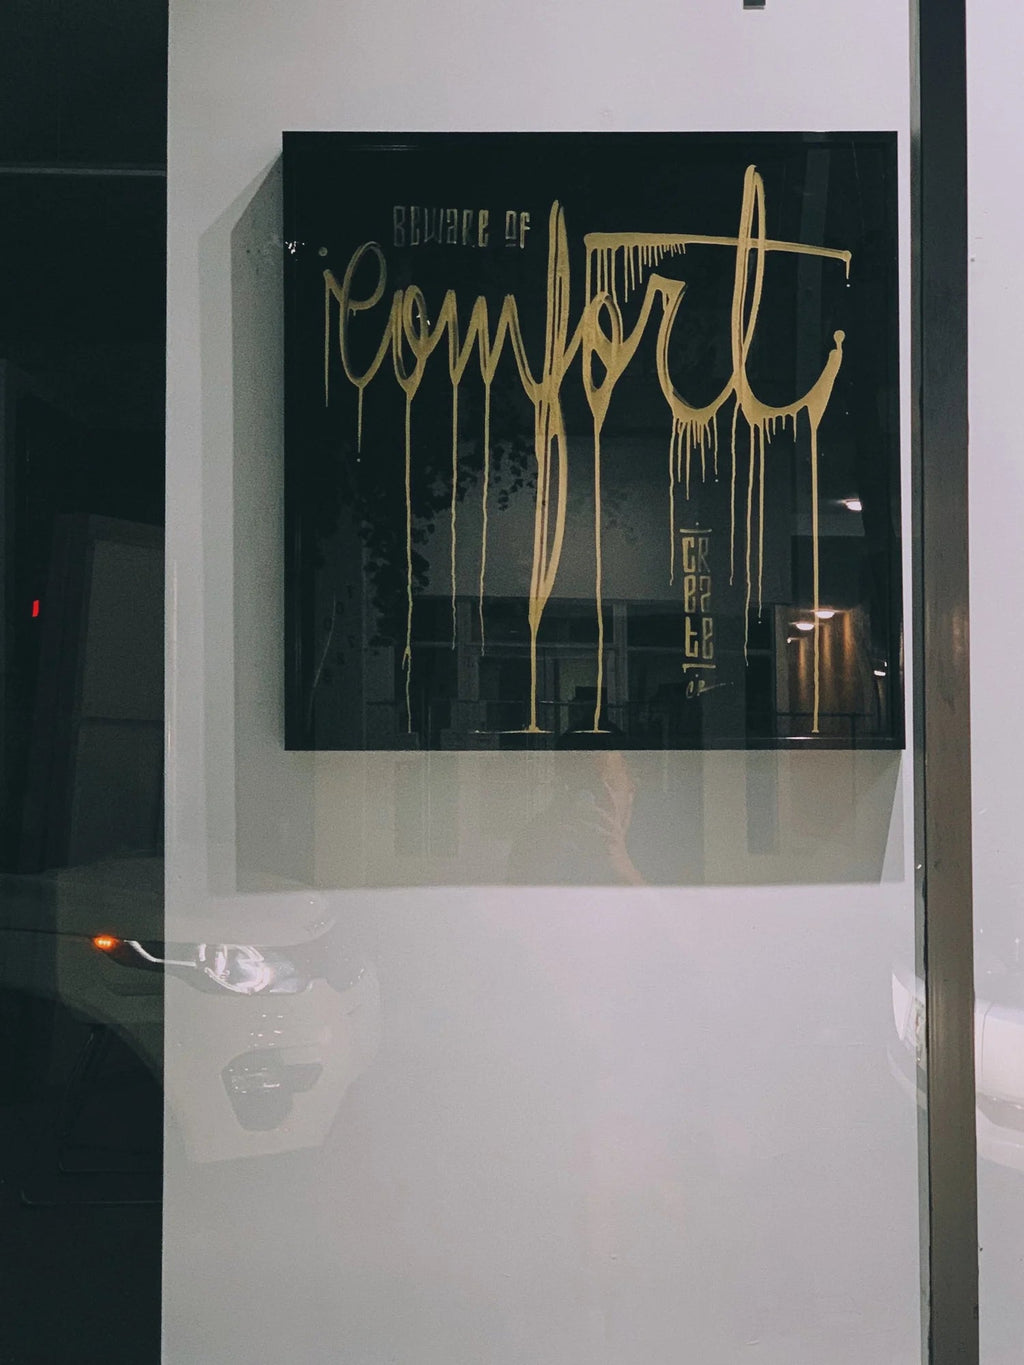 BEWARE OF
comfort
CREATE